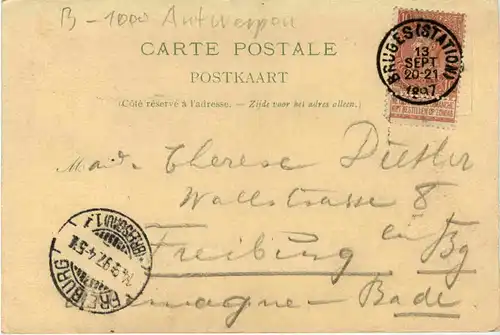 B-1000 Antwerpen
CARTE POSTALE
POSTKAART
(Côté réservé à l'adresse. — Zijde voor het adres alleen.)
BRUGES (STATION)
13
SEPT
20-21
1897
NIET BESTELLEN OP ZONDAG
Mad. Therese Dietler
Wallstrasse 8
Freiburg en Bg
magne - Bade
FREIBURG
(BREISGAU)